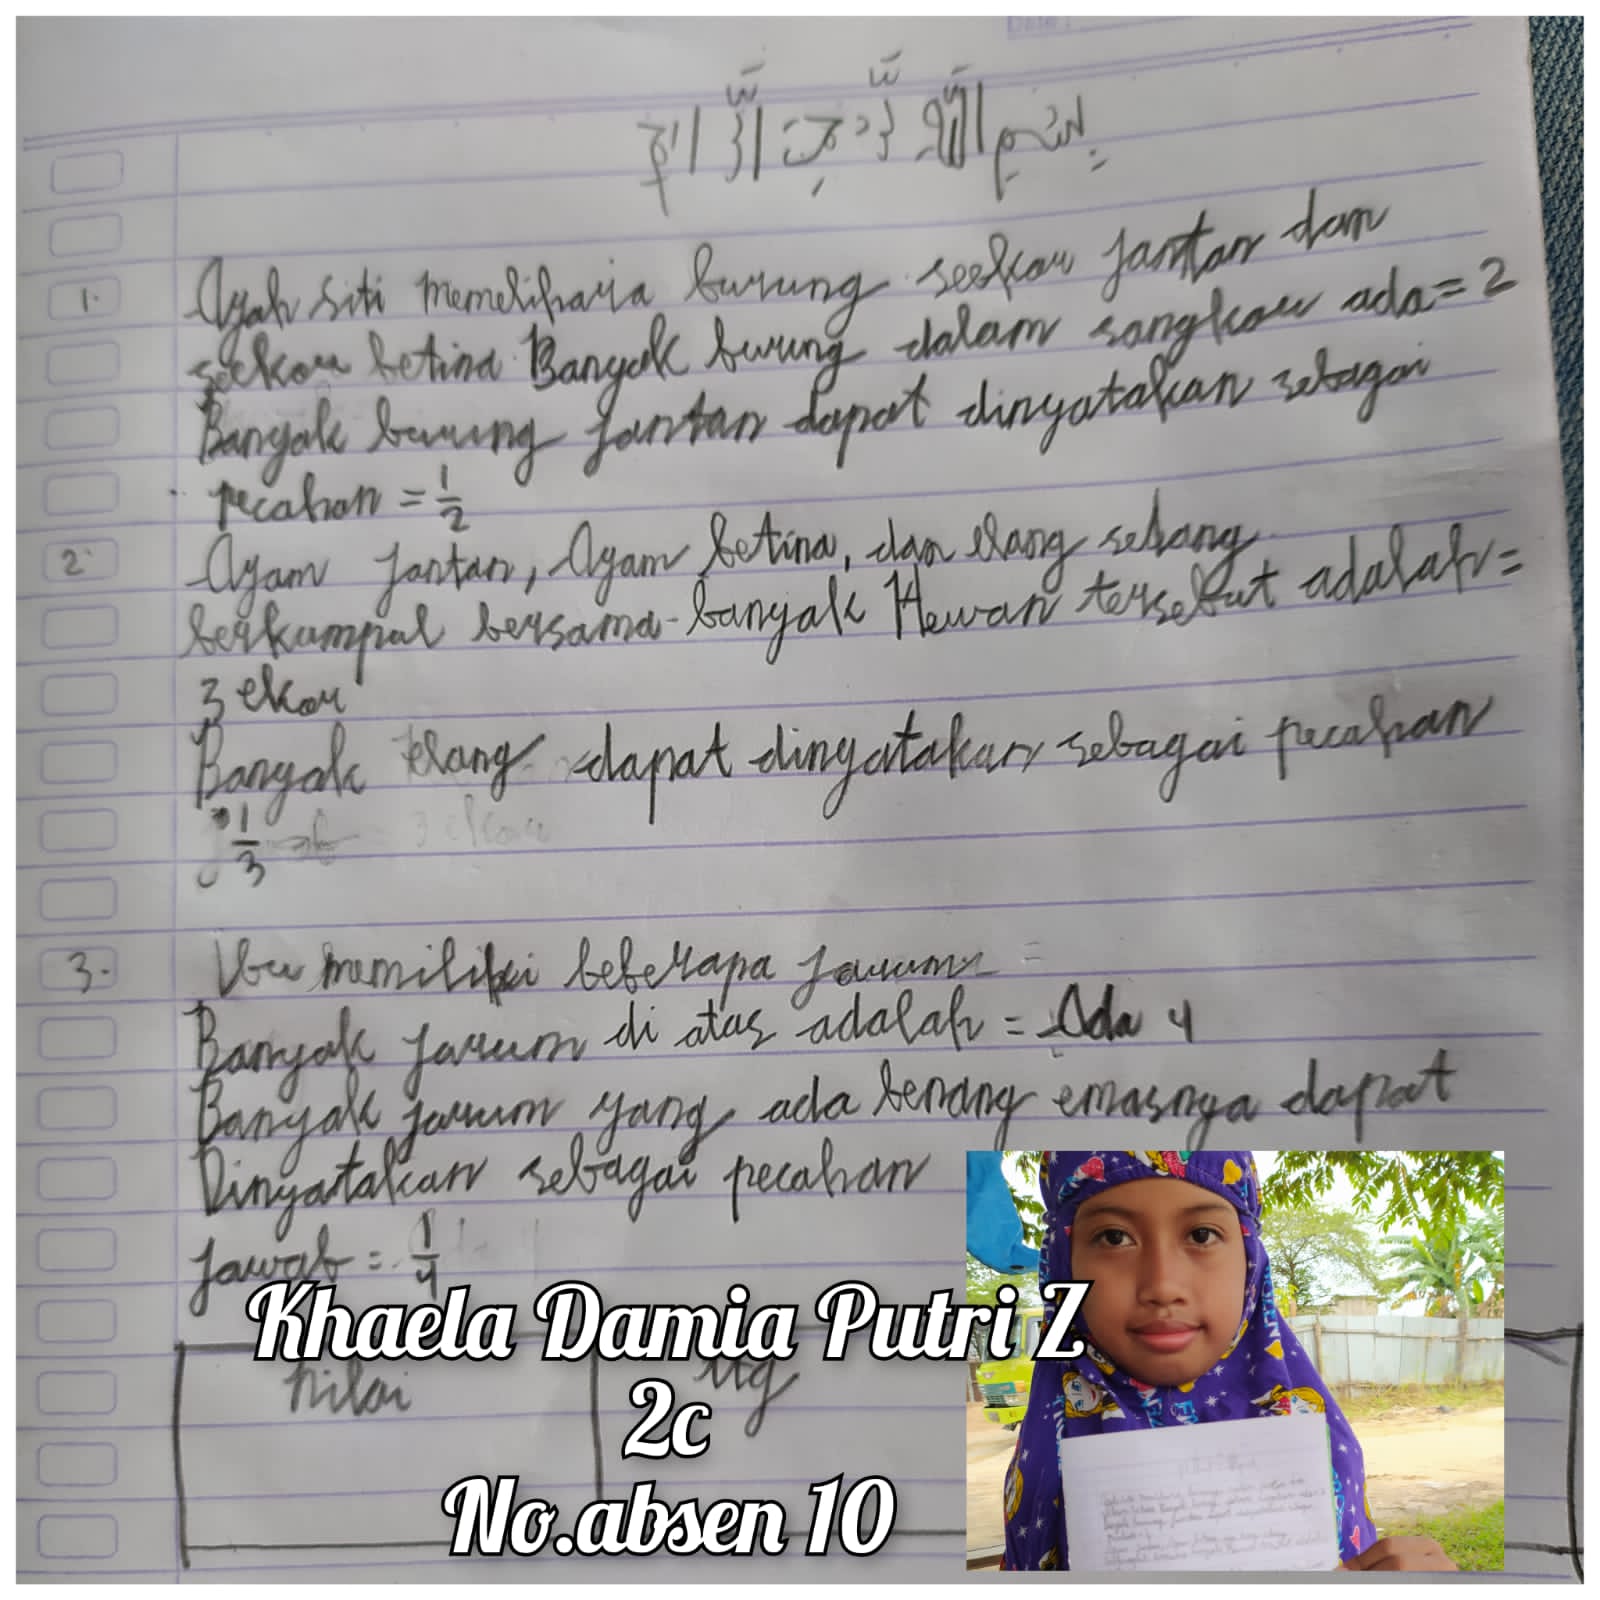 بسم الله الرحمن الرحيم
1. Ayah siti memelihara burung seekor jantan dan
seekor betina Banyak burung dalam sangkar ada = 2
Banyak burung jantan dapat dinyatakan sebagai
pecahan = 1/2
2. Ayam jantan, Ayam betina, dan elang sedang
berkumpul bersama-banyak Hewan tersebut adalah =
3 ekor
Banyak elang dapat dinyatakan sebagai pecahan
1/3
3. Ibu memiliki beberapa jarum =
Banyak jarum di atas adalah = Ada 4
Banyak jarum yang ada benang emasnya dapat
Dinyatakan sebagai pecahan
jawab = 1/4
Khaela Damia Putri Z
nilai
ttg
2c
No.absen 10